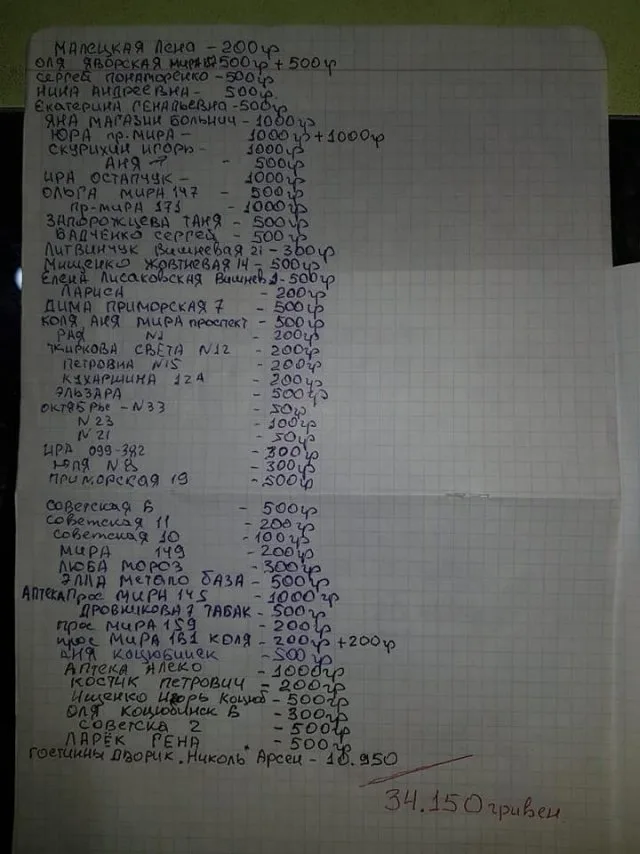 МАЛЕЦКАЯ ЛЕНА - 200гр
ОЛЯ ЯВОРСКАЯ МИРА 500гр + 500гр
СЕРГЕЙ ПОНАМОРЕНКО - 500гр
НИНА АНДРЕЕВНА - 500гр
ЕКАТЕРИНА ГЕНАЛЬЕВНА - 500гр
ЯНА МАГАЗИН БОЛЬНИЧ - 1000гр
ЮРА пр. МИРА - 1000гр + 1000гр
СКУРИХИН ИГОРЬ - 1000гр
АНЯ - 500гр
ИРА ОСТАПЧУК - 1000гр
ОЛЬГА МИРА 147 - 500гр
пр-МИРА 171 - 1000гр
ЗАПОРОЖЦЕВА ТАНЯ - 500гр
ВАДЧЕНКО СЕРГЕЙ - 500гр
ЛИТВИНЧУК ВИШНЕВАЯ 21 - 300гр
МИЩЕНКО ЖОВТНЕВАЯ 14 - 500гр
ЕЛЕНА ЛИСАКОВСКАЯ ВИШНЕВ - 500гр
ЛАРИСА - 200гр
ДИМА ПРИМОРСКАЯ 7 - 500гр
КОЛЯ АНЯ МИРА проспект - 500гр
РАЯ N1 - 200гр
ЖИРКОВА СВЕТА N12 - 200гр
ПЕТРОВНА N15 - 200гр
КУХАРШИНА 12А - 200гр
ЭЛЬЗАРА - 500гр
ОКТЯБРЬЕ - N33 - 50гр
N23 - 100гр
N21 - 50гр
ИРА 099-382 - 300гр
ЮЛЯ N8 - 300гр
ПРИМОРСКАЯ 19 - 500гр
СОВЕТСКАЯ 6 - 500гр
СОВЕТСКАЯ 11 - 200гр
СОВЕТСКАЯ 10 - 100гр
МИРА 149 - 200гр
ЛЮБА МОРОЗ - 300гр
ЭЛЛА МЕТАЛО БАЗА - 500гр
АПТЕКА Прос МИРА 145 - 1000гр
ДРОВНИКОВА 7 ТАБАК - 500гр
прос МИРА 159 - 200гр
прос МИРА 181 КОЛЯ - 200гр + 200гр
АНЯ КОЦЮБИНСК - 500гр
АПТЕКА АЛЕКО - 1000гр
КОСТИК ПЕТРОВИЧ - 200гр
ИЩЕНКО ИГОРЬ КОЦЮБ - 500гр
ОЛЯ КОЦЮБИНСК 6 - 300гр
СОВЕТСКА 2 - 500гр
ЛАРЁК ГЕНА - 500гр
ГОСТИННЫ ДВОРИК. "НИКОЛЬ" АРСЕН - 10.950
34.150 гривен